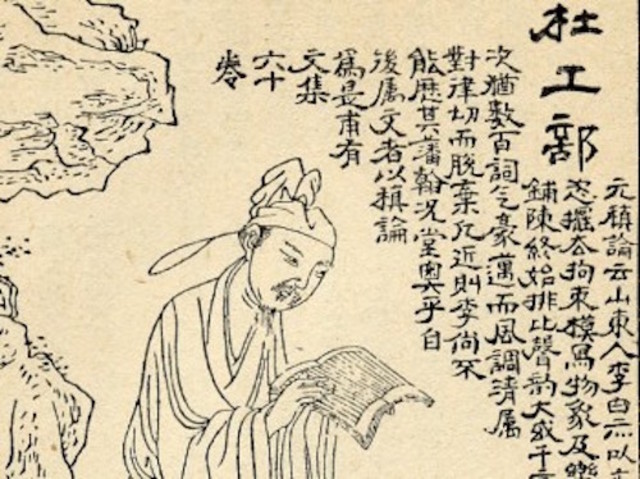 杜工部
元稹論云山東人李白亦以
恣擺去拘束模寫物象及樂
鋪陳終始排比聲韵大或千
次猶數百詞气豪邁而風調清属
對律切而脫棄凡近則李尚不
能歷其藩翰況堂奧乎自
後属文者以稹論
爲是甫有
文集
六十
卷